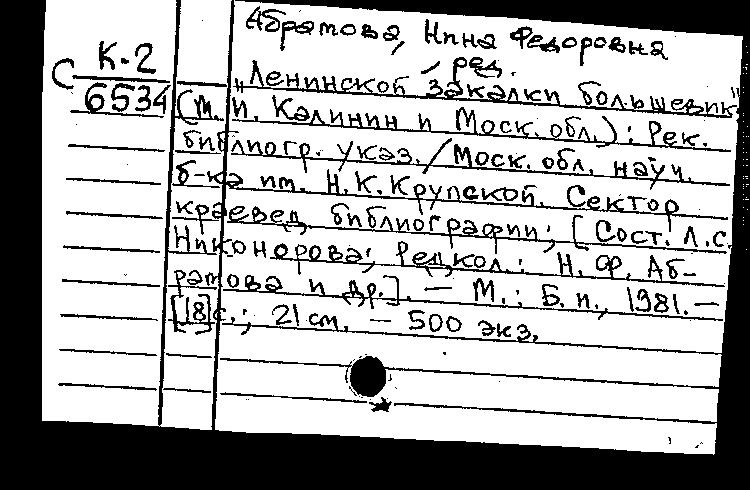 Абрамова, Нина Федоровна
ред.
С К-2
6534
„Ленинской закалки большевик"
(М. И. Калинин и Моск. обл.): Рек.
библиогр. указ. / Моск. обл. науч.
б-ка им. Н. К. Крупской. Сектор
краевед. библиографии; [Сост. Л.С.
Никонорова; Редкол.: Н. Ф. Аб-
рамова и др.]. — М.: Б. и., 1981. —
[18] с.; 21 см. — 500 экз.